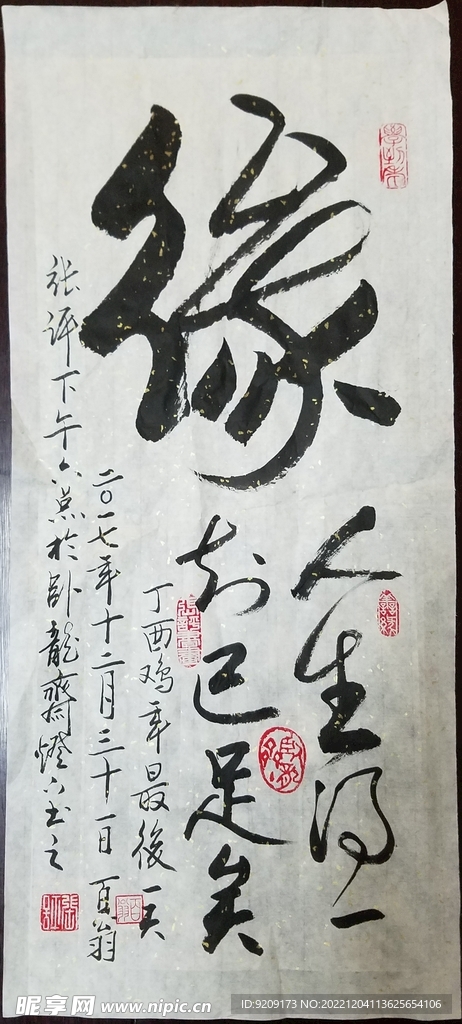 缘
人生得一
知己足矣
丁酉鸡年最後一天
二〇一七年十二月三十一日 百翁
张评下午六点於卧龍齋燈下书之
昵享网 www.nipic.cn
ID:9209173 NO:20221204113625654106